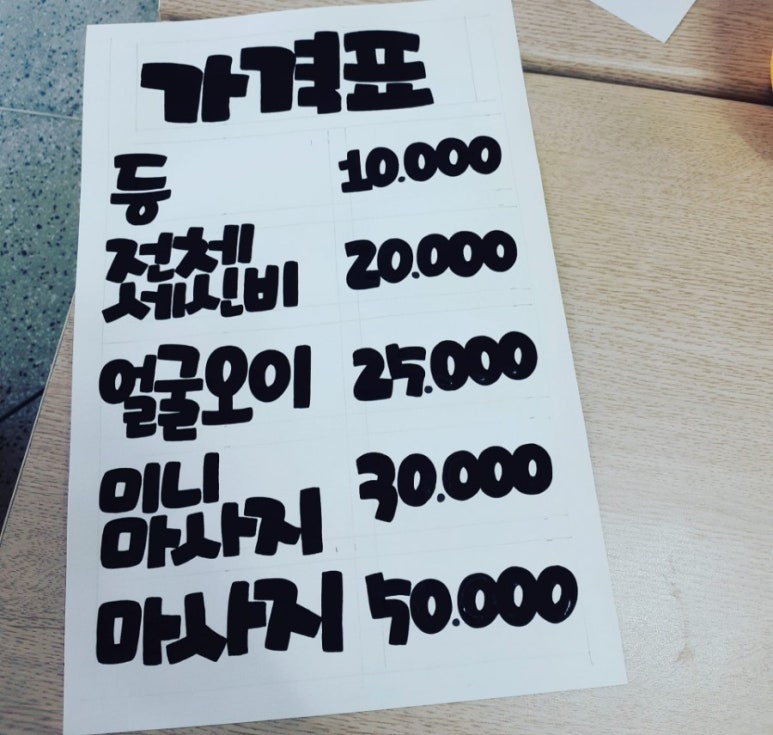 가격표
등 10.000
전체
세신비 20.000
얼굴오이 25.000
미니
마사지 30.000
마사지 50.000